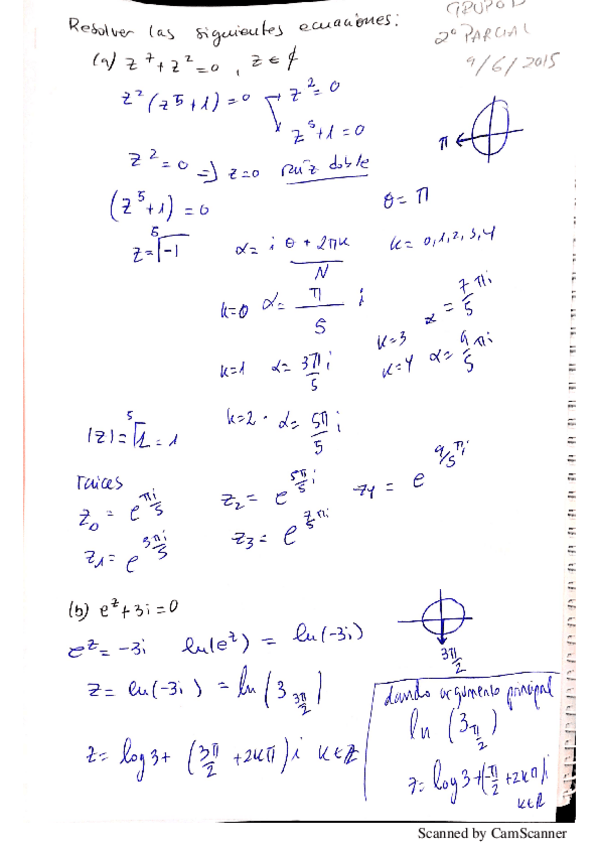 Resolver las siguientes ecuaciones:
GRUPO D
2º PARCIAL
9/6/2015
(a) z⁷+z²=0, z∈ ₵
z²(z⁵+1)=0 → z²=0
z⁵+1=0
π
z²=0 ⇒ z=0 raiz doble
(z⁵+1)=0
θ=π
z=⁵√-1 α= i θ+2πk/N k=0,1,2,3,4
k=0 α= π/5 i
k=3 α= 7/5 πi
k=1 α= 3π/5 i
k=4 α= 9/5 πi
k=2 · α= 5π/5 i
|z|=⁵√1=1
raices
z₀ = e^(πi/5) z₂= e^(5π/5 i) z₄ = e^(9/5 πi)
z₁= e^(3πi/5) z₃= e^(7/5 πi)
(b) e^z+3i=0
e^z=-3i ln(e^z) = ln(-3i)
3π/2
z= ln(-3i) = ln(3_(3π/2))
z= log3+ (3π/2 +2kπ)i k∈Z
dando argumento principal
ln (3_(-π/2))
z= log3+(-π/2 +2kπ)i
k∈Z
Scanned by CamScanner